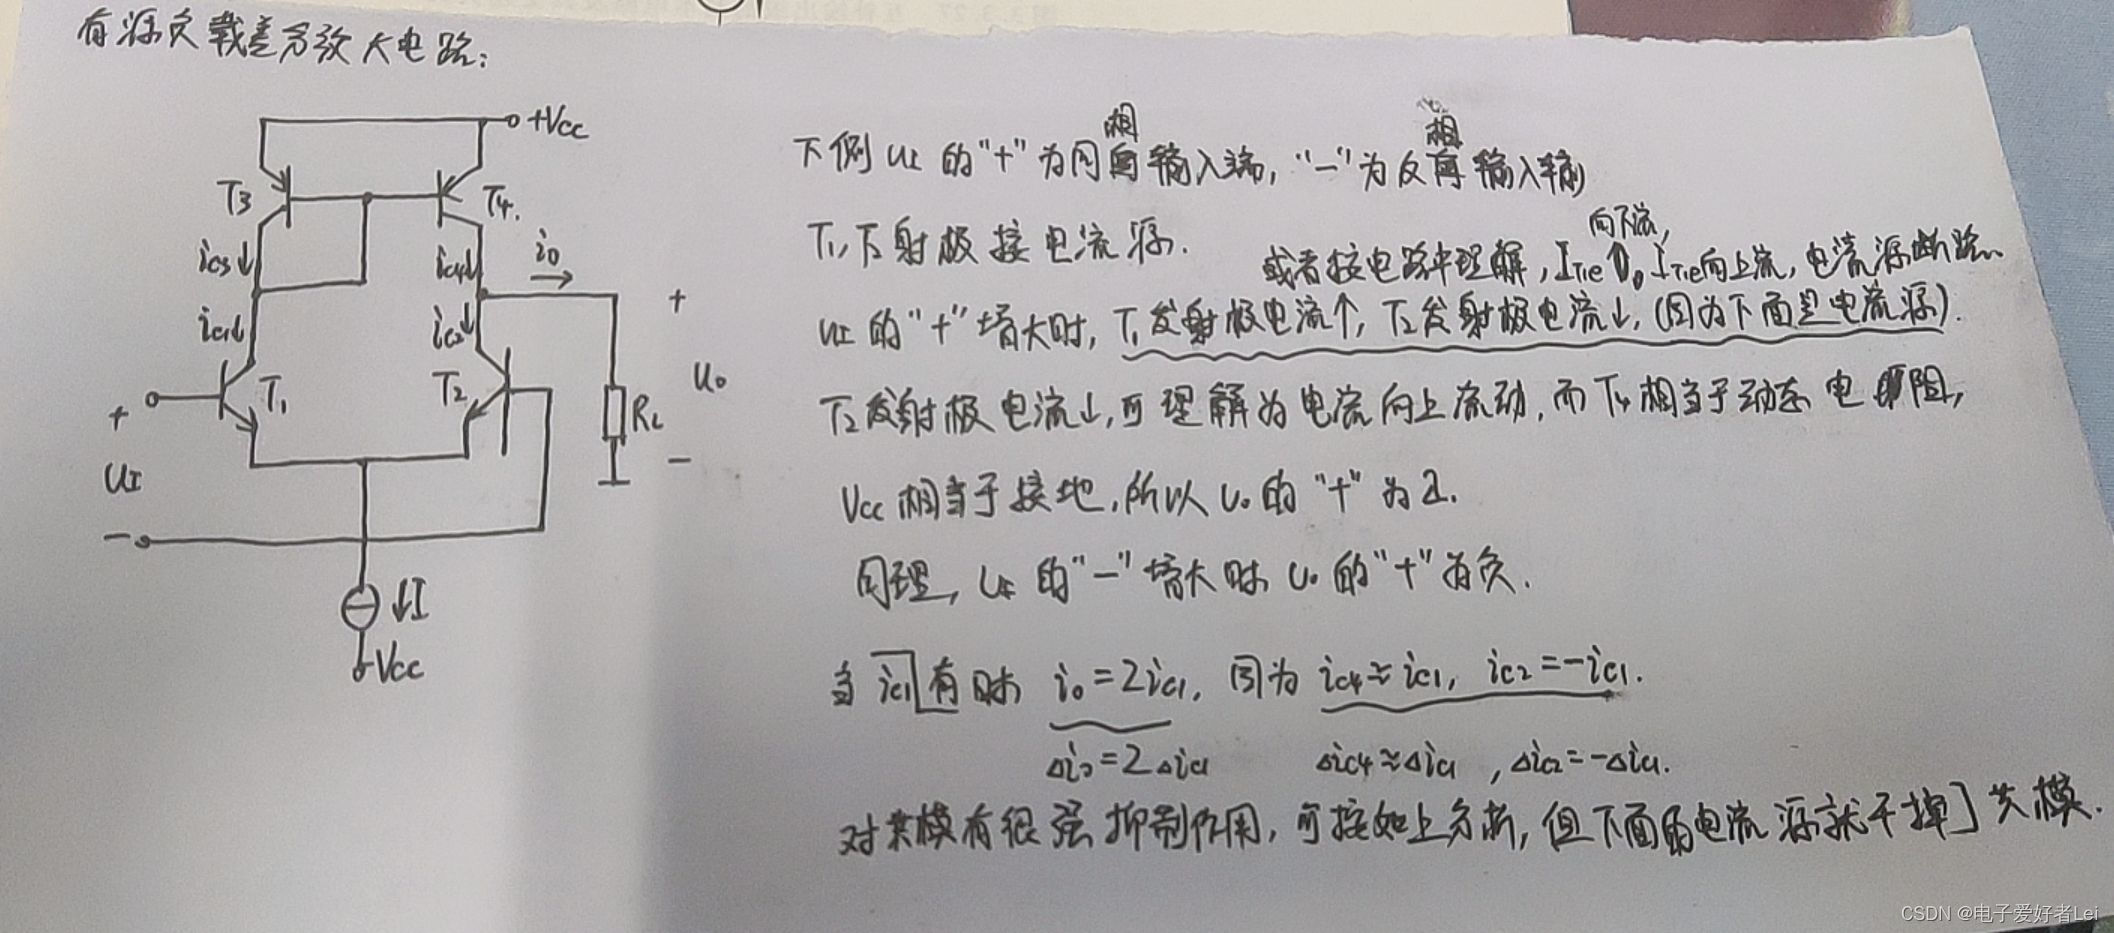 有源负载差分放大电路:
+Vcc
T3
T4.
ic3↓
ic4↓
io
ic1↓
ic2↓
T1
T2
+
UI
−
+
Uo
−
RL
↓I
-Vcc
相 相
下例 UI 的"+"为同向输入端,"−"为反向输入
T1,下射极接电流源.
向下流,
或者按电路中理解, ITe 向上流, 电流源断路.
UI 的"+"增大时, T1发射极电流↑, T2发射极电流↓, (因为下面是电流源).
T2发射极电流↓, 可理解为电流向上流动, 而T4相当于动态电阻,
Vcc 相当于接地, 所以 Uo 的"+"为正.
同理, UI 的"−"增大时 Uo 的"+"为负.
当 ic1 有时 io=2ic1, 因为 ic4≈ic1, ic2=-ic1.
△io=2△ic1 △ic4≈△ic1 , △ic2=-△ic1.
对共模有很强抑制作用, 可按如上分析, 但下面的电流源就干掉了共模.
CSDN @电子爱好者Lei